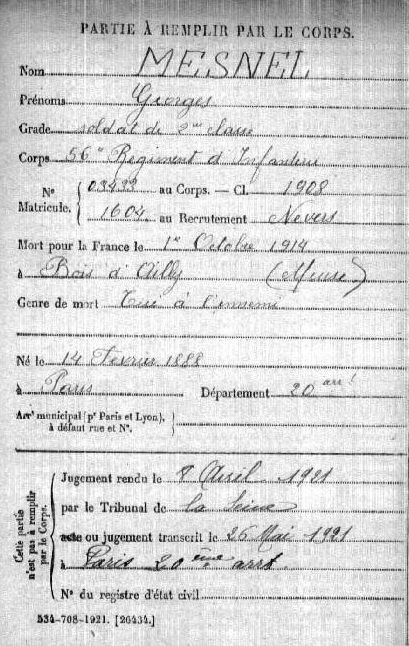 PARTIE À REMPLIR PAR LE CORPS.
Nom MESNEL
Prénoms Georges
Grade soldat de 2me classe
Corps 56e Régiment d'Infanterie
N° Matricule. 03432 au Corps. — Cl. 1908
1604 au Recrutement Nevers
Mort pour la France le 1er Octobre 1914
à Bois d'Ailly (Meuse)
Genre de mort Tué à l'ennemi
Né le 14 Février 1888
à Paris Département 20 arr!
Arrt municipal (pr Paris et Lyon), à défaut rue et N°.
Cette partie n'est pas à remplir par le Corps.
Jugement rendu le 8 Avril 1921
par le Tribunal de la Seine
acte ou jugement transcrit le 26 Mai 1921
à Paris 20ème arrt
N° du registre d'état civil
534-708-1921. [26434.]